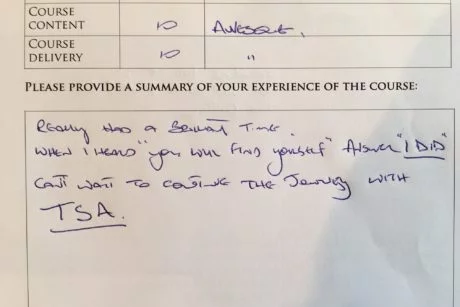 COURSE CONTENT 10 AWESOME.
COURSE DELIVERY 10 "
PLEASE PROVIDE A SUMMARY OF YOUR EXPERIENCE OF THE COURSE:
REALLY HAD A BRILLIANT TIME.
WHEN I HEARD "YOU WILL FIND YOURSELF" ANSWER "I DID"
CAN'T WAIT TO CONTINUE THE JOURNEY WITH
TSA.